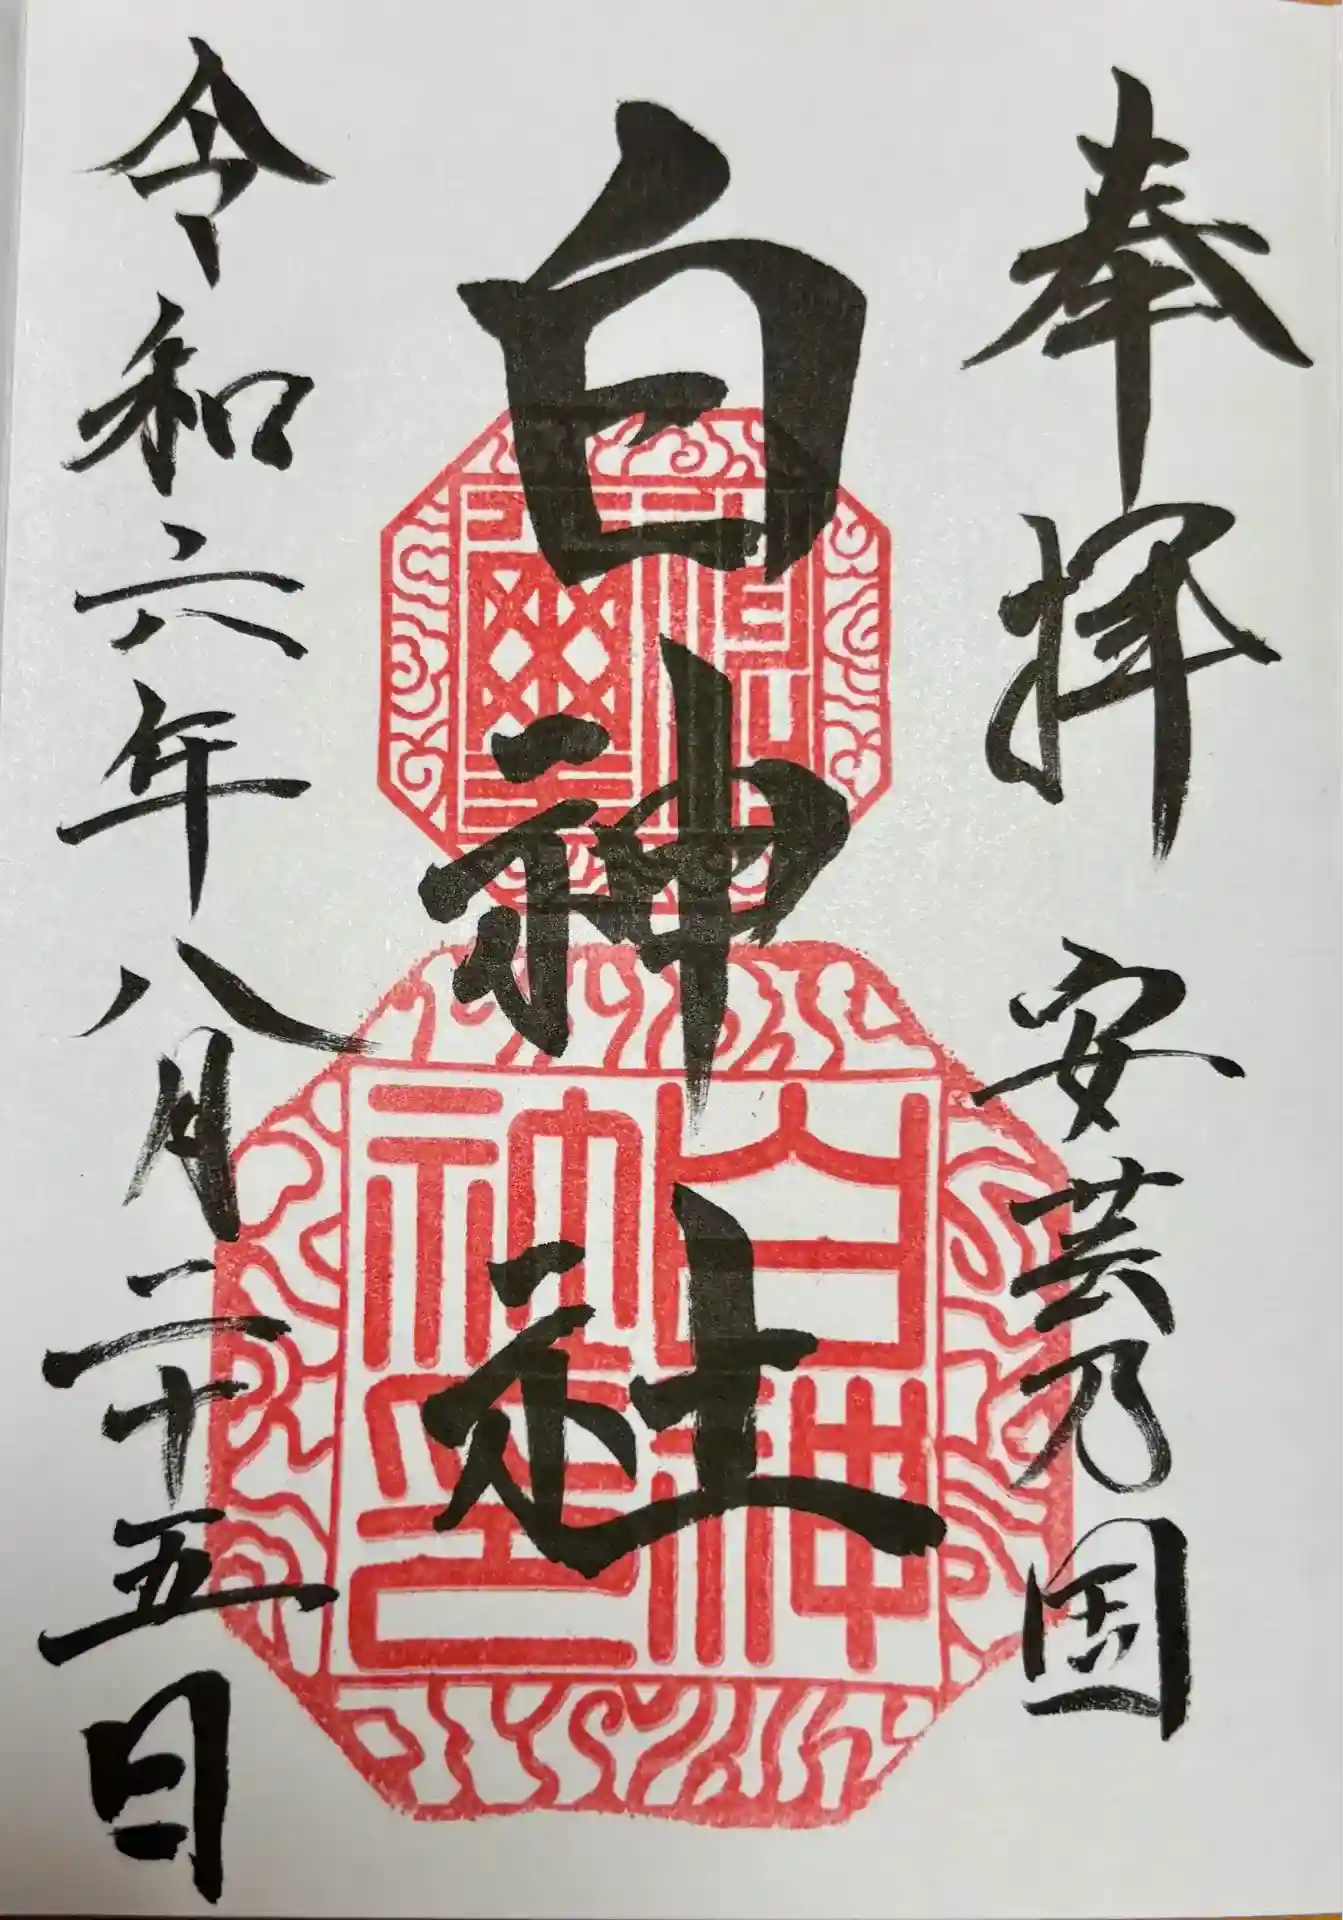 奉拝 安芸乃国
白神社
令和六年八月二十五日
白神
神印